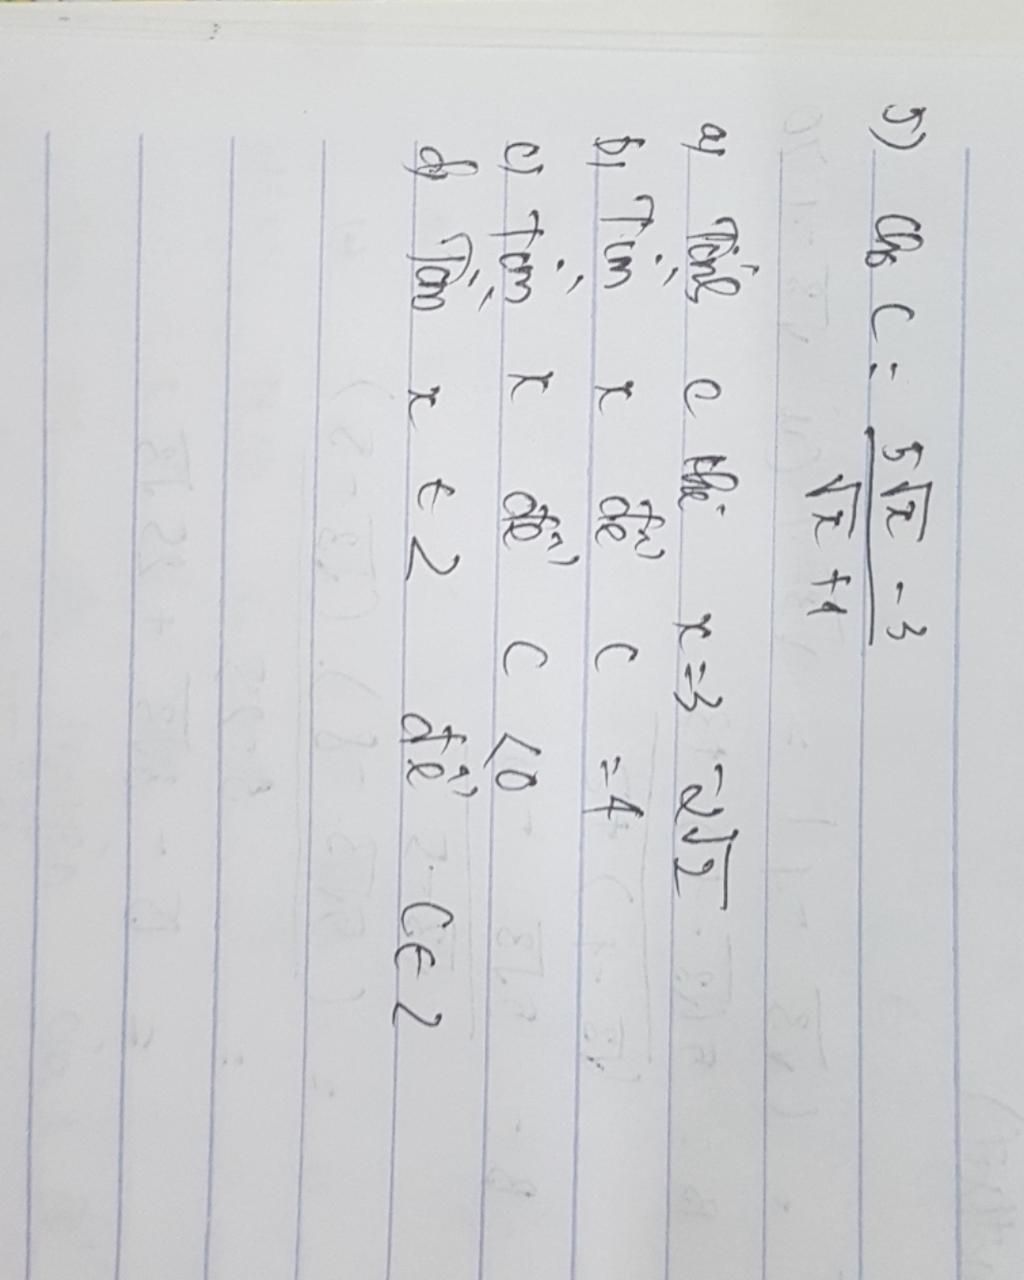 5) Cho C = 5√x - 3 / √x + 1
a) Tính C khi x = 3 - 2√2
b) Tìm x để C = 4
c) Tìm x để C < 0
d) Tìm x ∈ Z để C ∈ Z